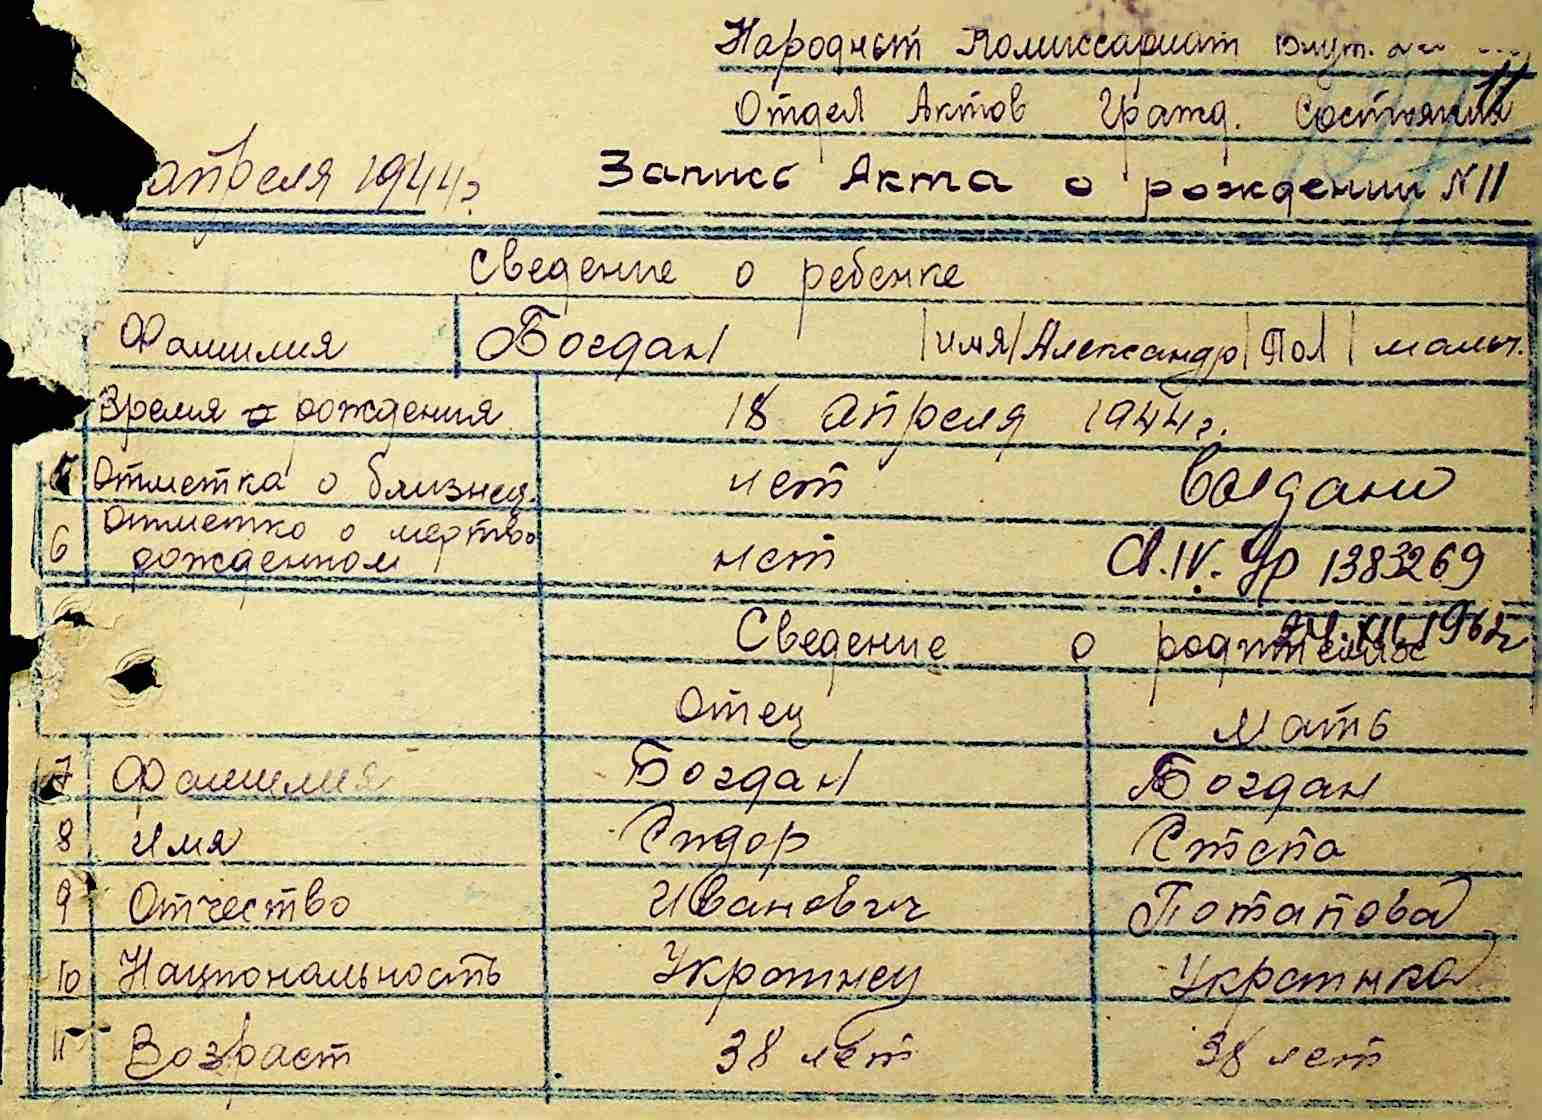 Народныт Комиссариат Внут.
Отдел Актов Гражд. Состояния
апреля 1944 г. Запись Акта о рождении N 11
Сведение о ребенке
Фамилия Богдан имя Александр Пол мальч.
Время рождения 18 апреля 1944 г.
5 Отметка о близнец. нет
6 Отметка о мертво рожденном нет
IV. 1383269
Сведение о родителях
Отец Мать
7 Фамилия Богдан Богдан
8 Имя Сидор Степа
9 Отчество Иванович Потапова
10 Национальность Украинец Украинка
11 Возраст 38 лет 38 лет